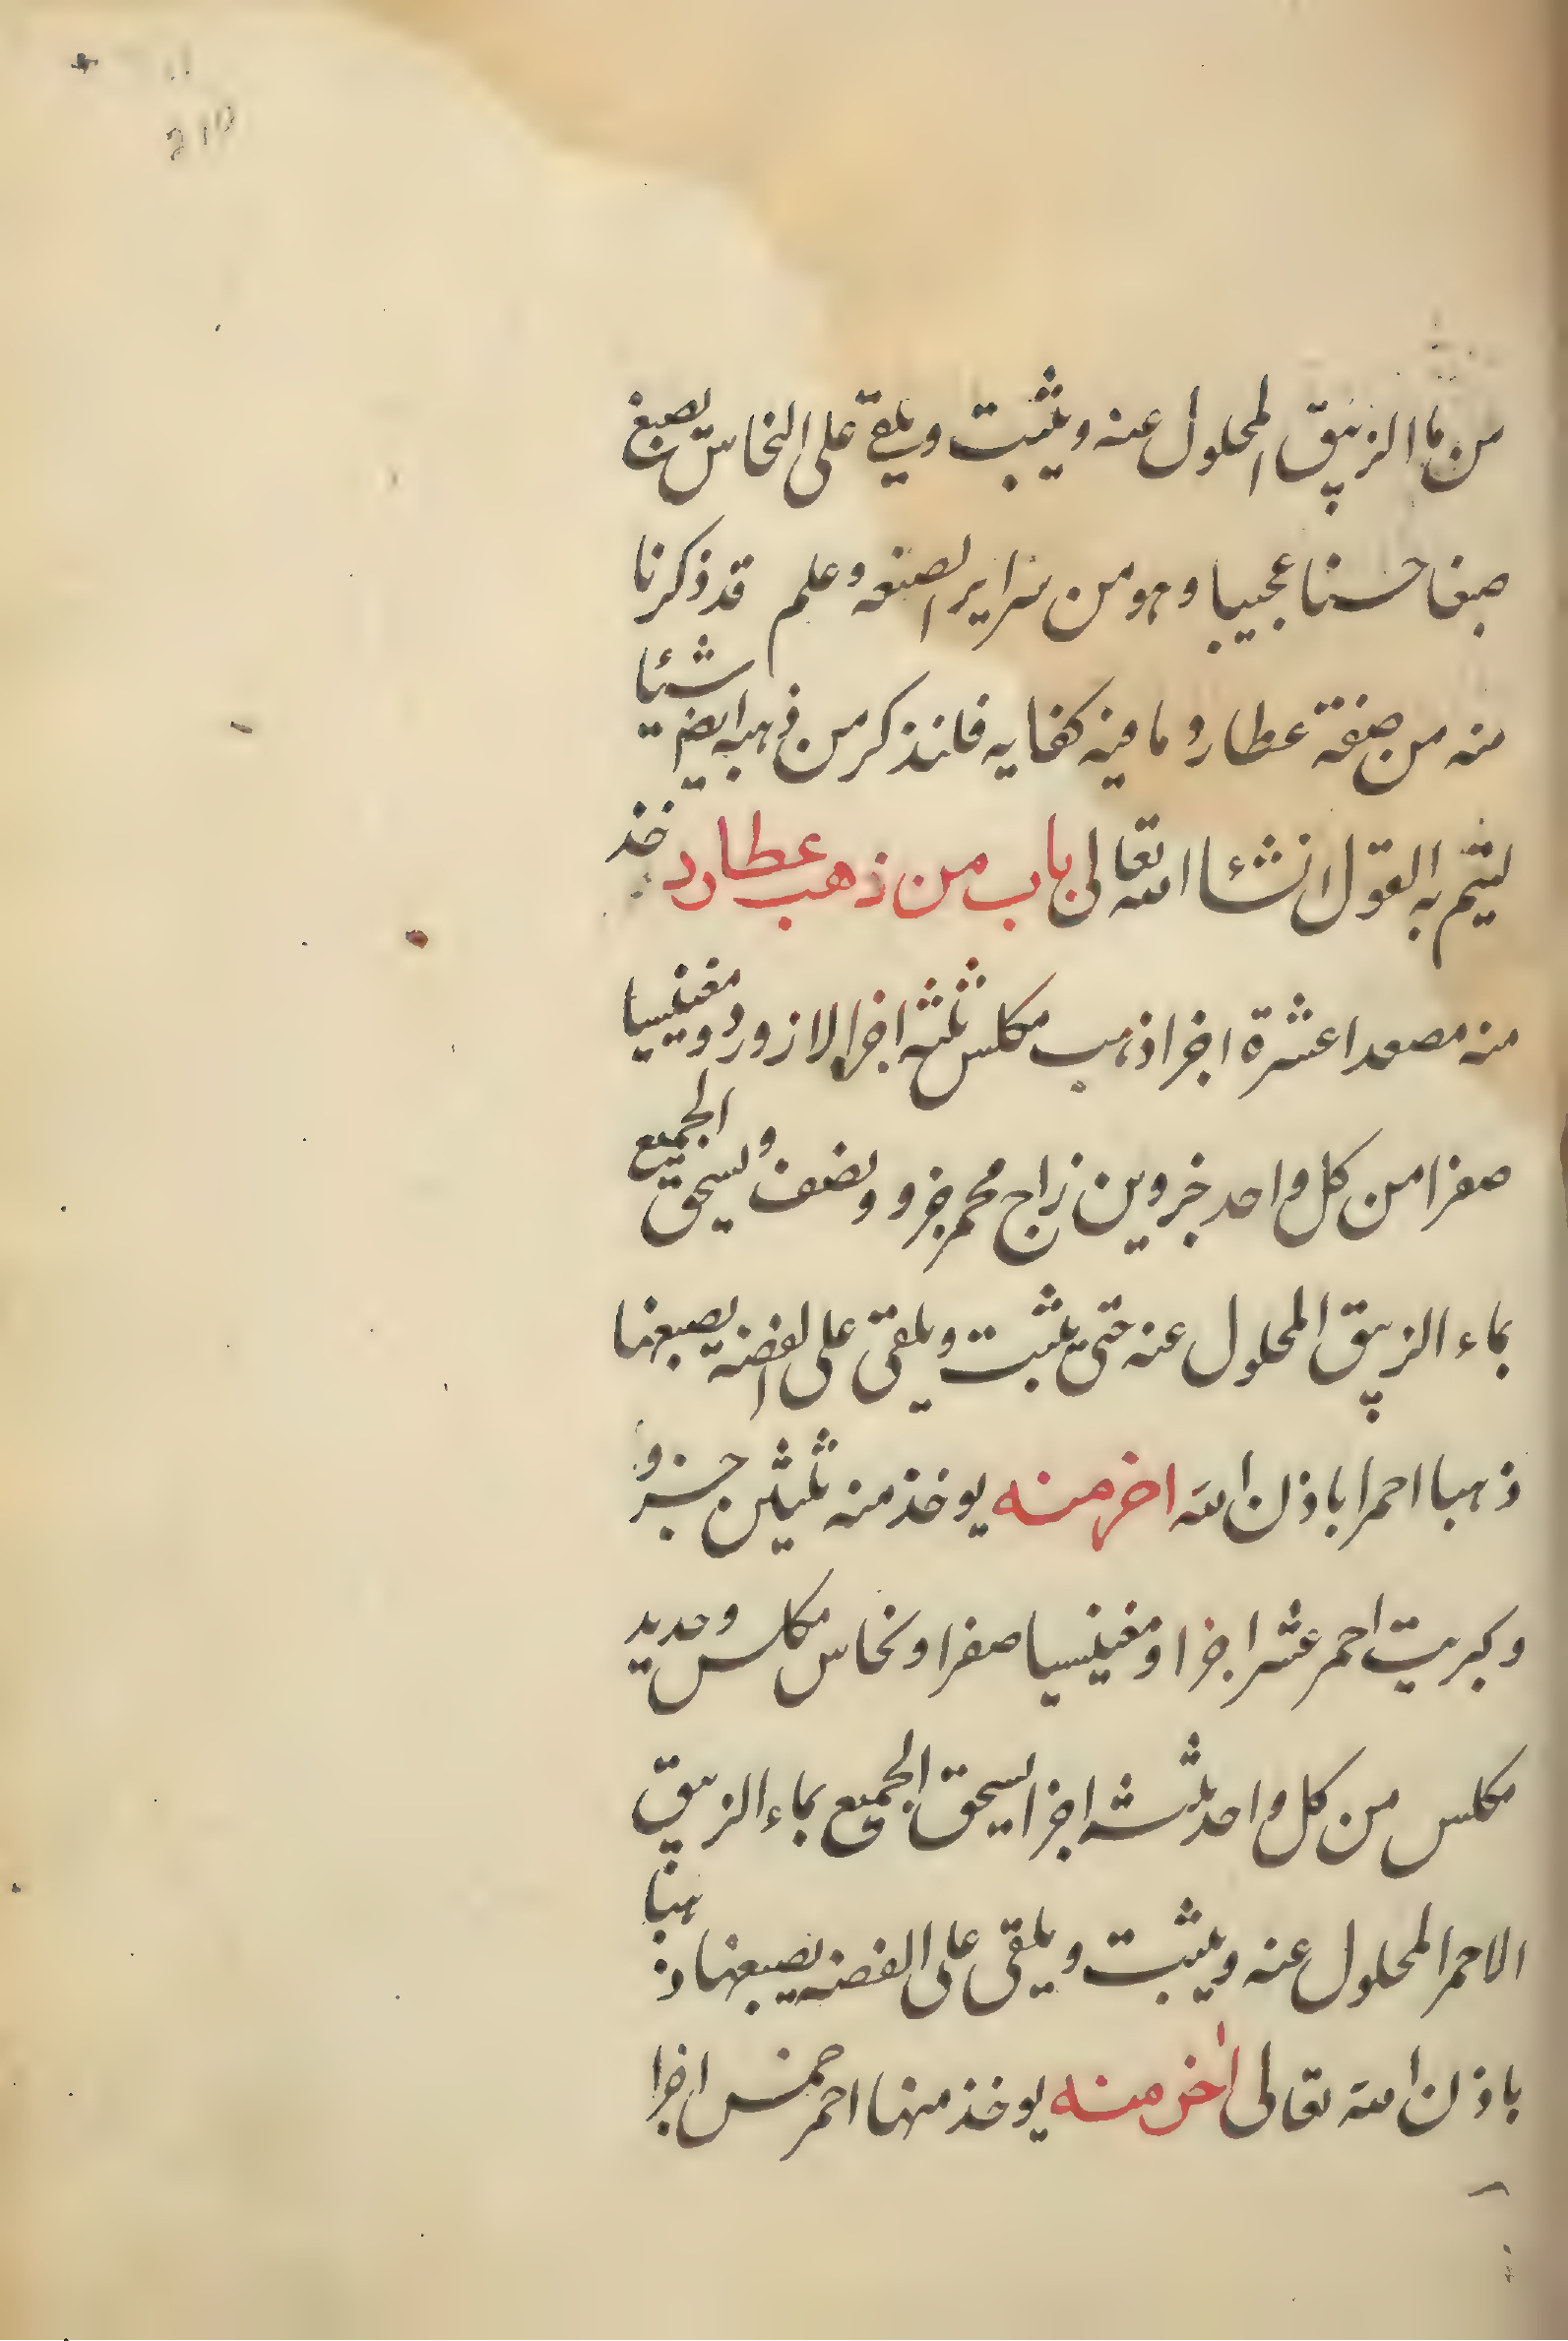 من ما الزيبق المحلول عنه ويثبت ويلقى على النحاس يصبغ
صبغا حسنا عجيبا وهو من سراير الصنعه وعلم قد ذكرنا
منه من صفة عطارد ما فيه كفايه فلنذكر من ذهبه ايضم شيئا
ليتم به القول انشاء الله تعالى باب من ذهب عطارد خذ
منه مصعدا عشرة اجزا ذهب مكلس ثلثه اجزا لازورد ومغنيسيا
صفرا من كل واحد جزوين زاج محمر جزو ونصف ويسحق الجميع
بماء الزيبق المحلول عنه حتى يثبت ويلقى على الفضه يصبغها
ذهبا احمرا باذن الله اخر منه يوخذ منه ثلثين جزو
وكبريت احمر عشر اجزا ومغنيسيا صفرا ونحاس مكلس وحديد
مكلس من كل واحد ثلثه اجزا يسحق الجميع بماء الزيبق
الاحمر المحلول عنه ويثبت ويلقى على الفضه يصبغها ذهبا
باذن الله تعالى اخر منه يوخذ منها احمر خمس اجزا